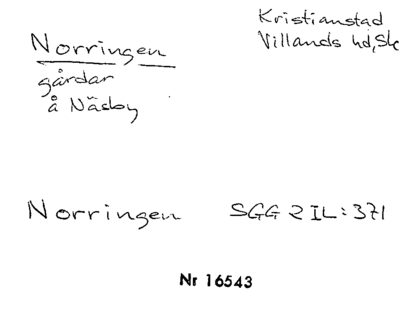 Kristianstad
Villands hd, Sk
Norringen
gårdar
å Näsby
Norringen SGG 2 IL:371
Nr 16543